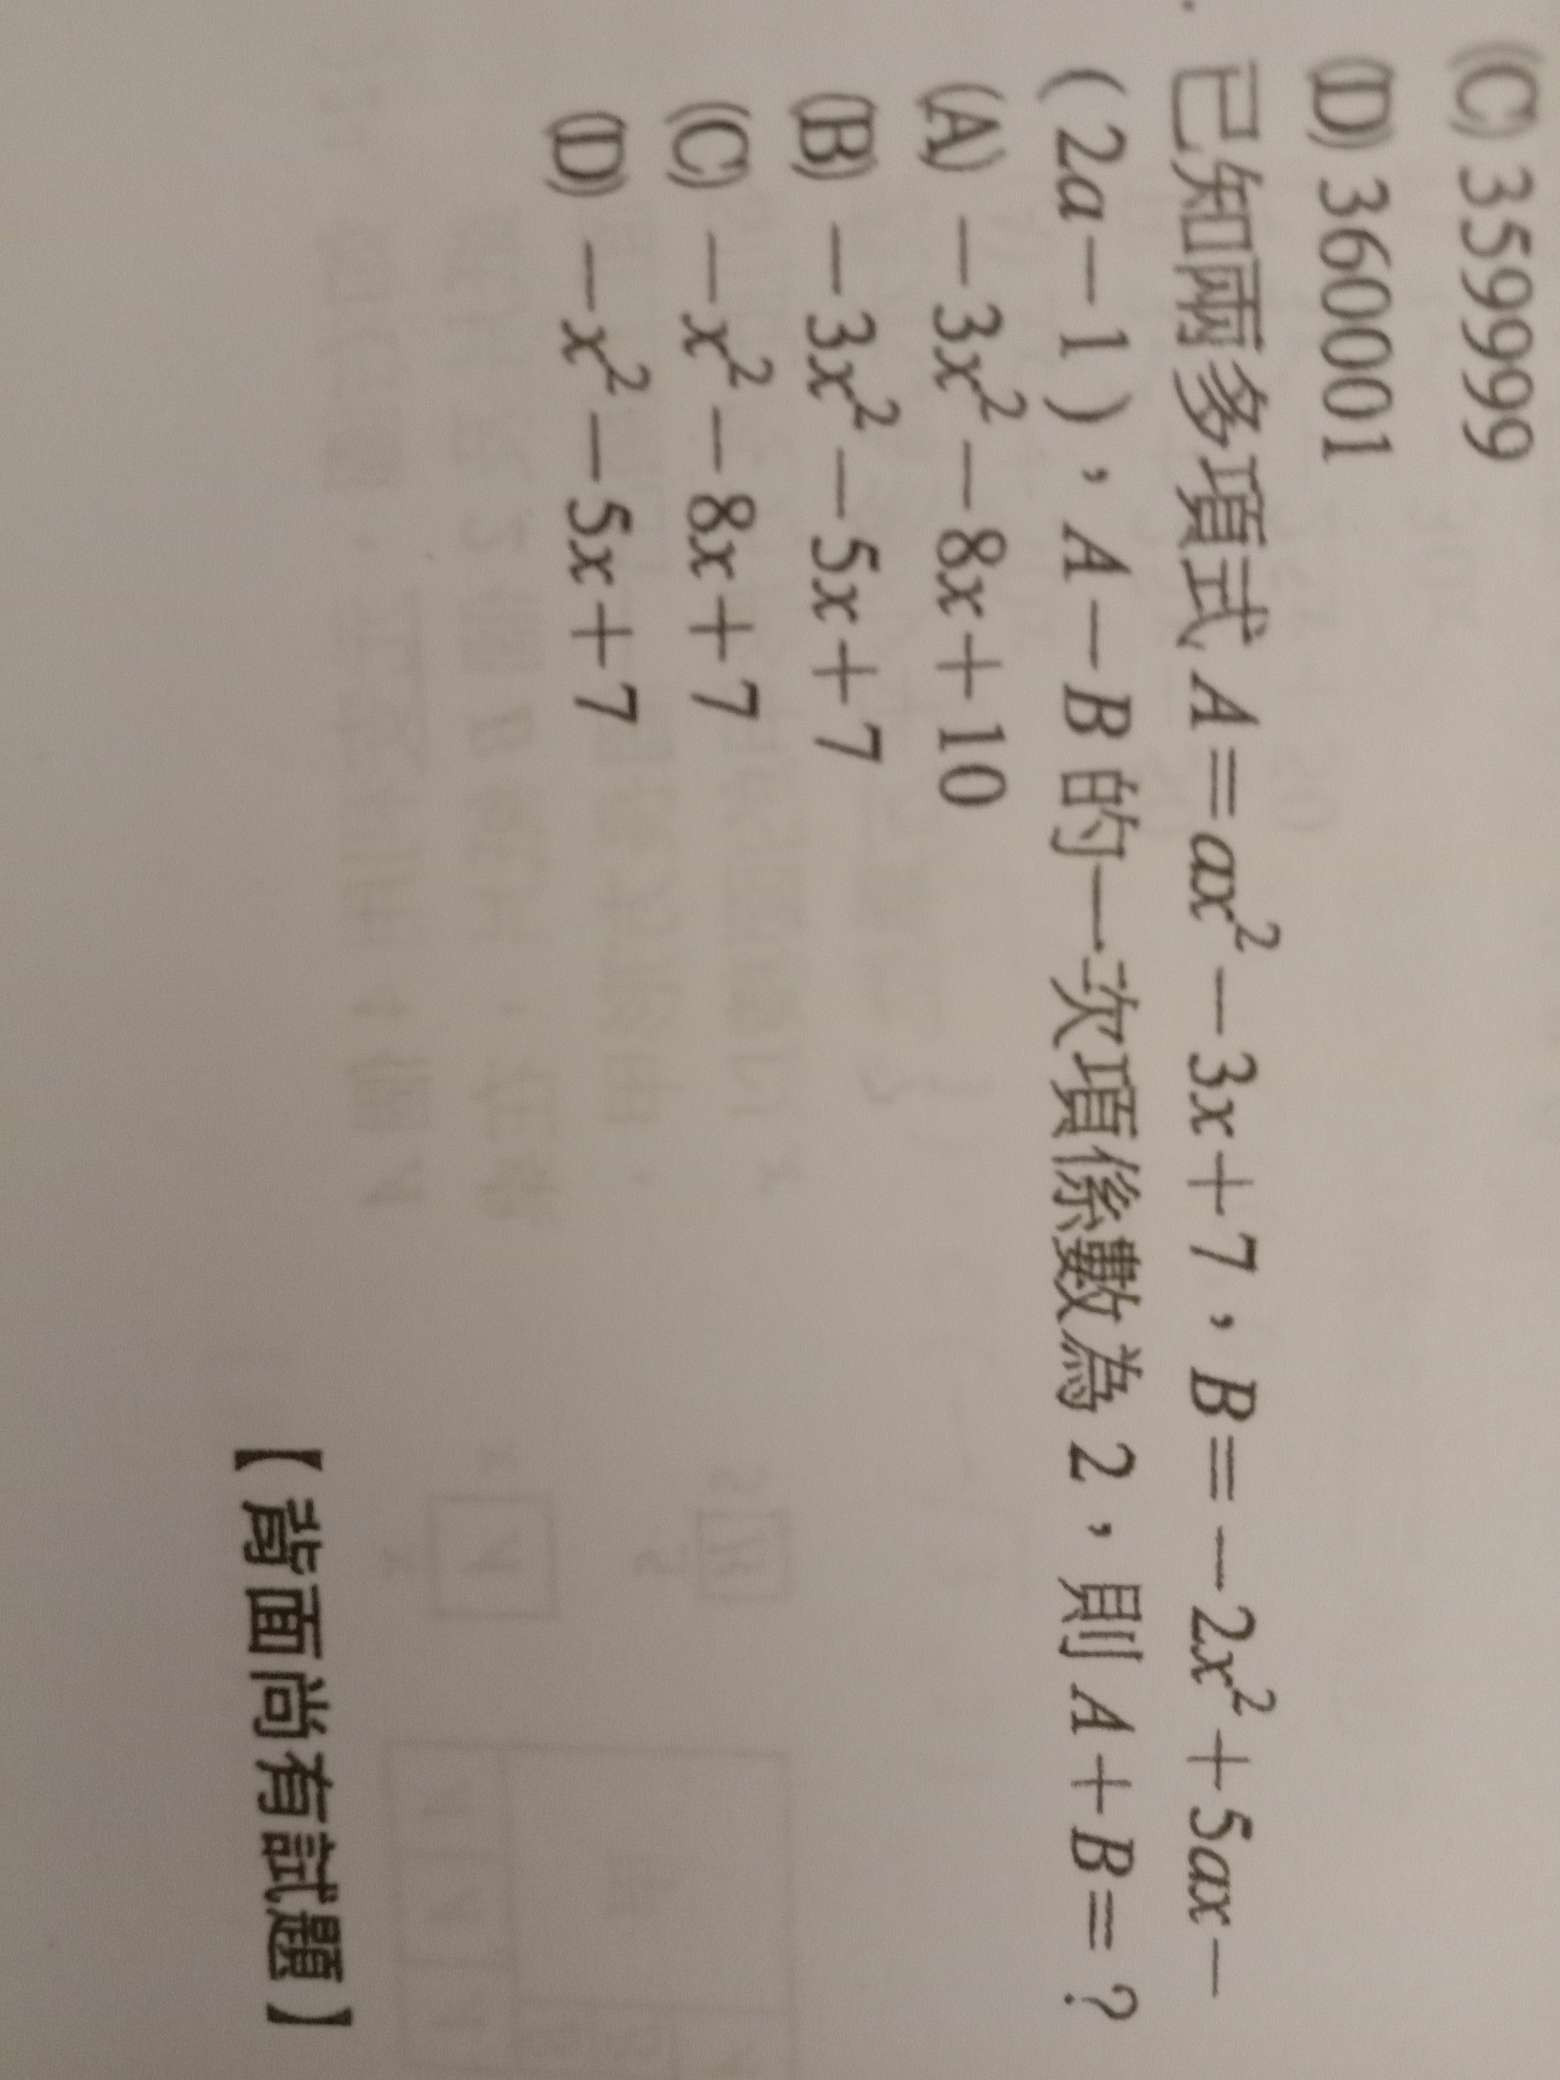 (C) 359999
(D) 360001
. 已知兩多項式 A=ax²-3x+7,B=-2x²+5ax-
(2a-1),A-B 的一次項係數為 2,則 A+B=?
(A) -3x²-8x+10
(B) -3x²-5x+7
(C) -x²-8x+7
(D) -x²-5x+7
【背面尚有試題】